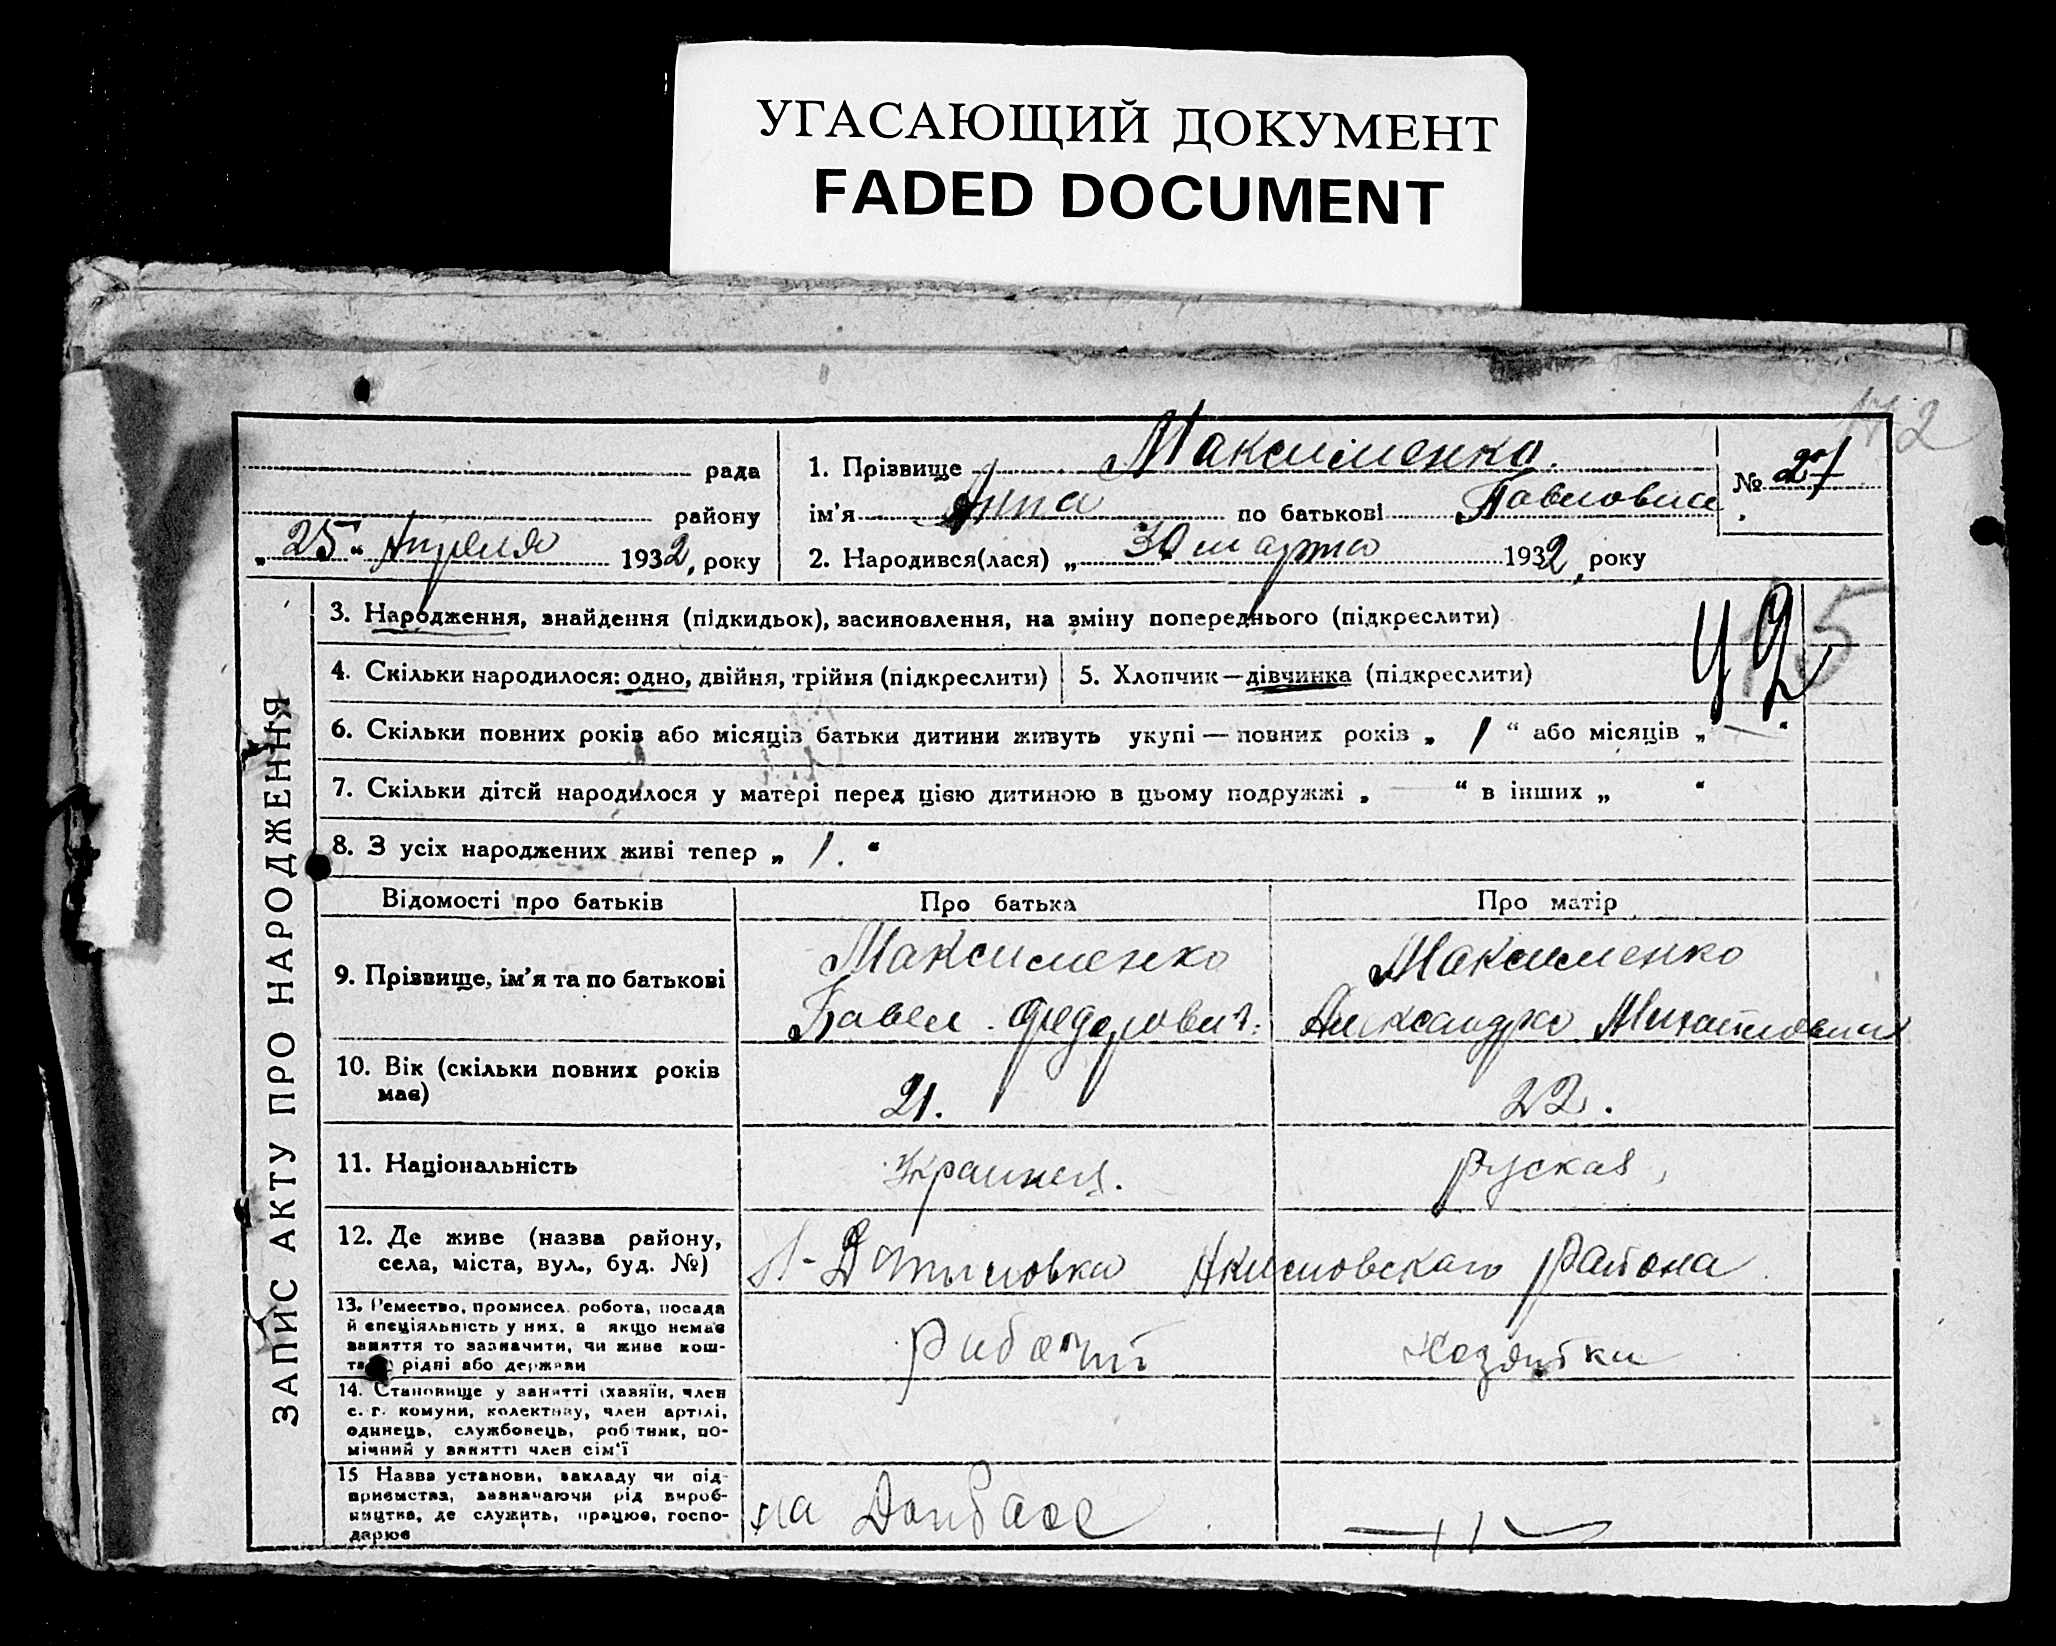 УГАСАЮЩИЙ ДОКУМЕНТ
FADED DOCUMENT
172
рада
району
„25“ Апреля 1932, року
1. Прізвище Максименко.
ім’я Анна по батькові Павловна
№ 21
2. Народився(лася) „30 марта 1932, року
ЗАПИС АКТУ ПРО НАРОДЖЕННЯ
3. Народження, знайдення (підкидьок), засиновлення, на зміну попереднього (підкреслити)
4. Скільки народилося: одно, двійня, трійня (підкреслити) 5. Хлопчик—дівчинка (підкреслити)
6. Скільки повних років або місяців батьки дитини живуть укупі — повних років „ 1 “ або місяців „ — “
7. Скільки дітей народилося у матері перед цією дитиною в цьому подружжі „ — “ в інших „ “
8. З усіх народжених живі тепер „ 1. “
Відомості про батьків Про батька Про матір
9. Прізвище, ім’я та по батькові
Максименко Максименко
Павел Федорович Александра Михайловна
10. Вік (скільки повних років має)
21. 22.
11. Національність
Украинец. руская
12. Де живе (назва району, села, міста, вул., буд. №)
Акимовскаго района
13. Ремество, промисел, робота, посада
й спеціяльність у них, а якщо немає
заняття то зазначити, чи живе кош-
рідні або держави
Рабочий Хозяйка
14. Становище у занятті (хазяїн, член
с. г. комуни, колективу, член артілі,
одинець, службовець, робітник, по-
мічний у занятті член сім’ї
15 Назва установи, закладу чи під-
приємства, зазначаючи рід вироб-
ництва, де служить, працює, госпо-
дарює
на Донбасе —〃—